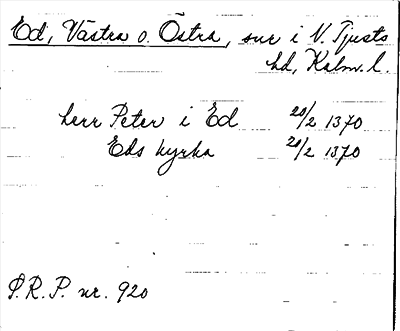 Ed, Västra o. Östra, snr i N. Tjusts
hd, Kalm. l.
herr Peter i Ed 20/2 1370
Eds kyrka 20/2 1370
S.R.P. nr. 920